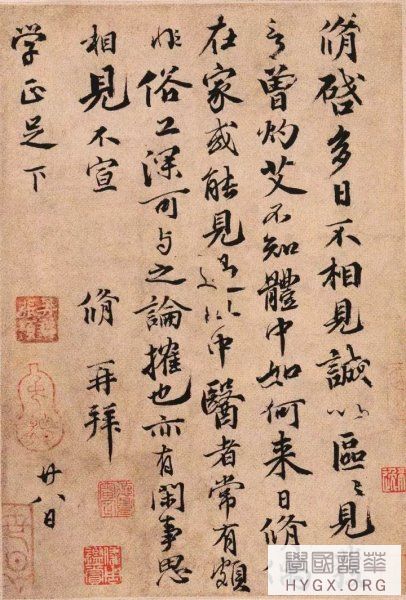 脩啓多日不相見誠以區〻見
言曾灼艾不知體中如何来日脩
在家或能見過此中醫者常有頗
非俗工深可与之論搉也亦有閑事思
相見不宣 脩 再拜
学正足下 廿八日
華韻國學
HYGX.ORG